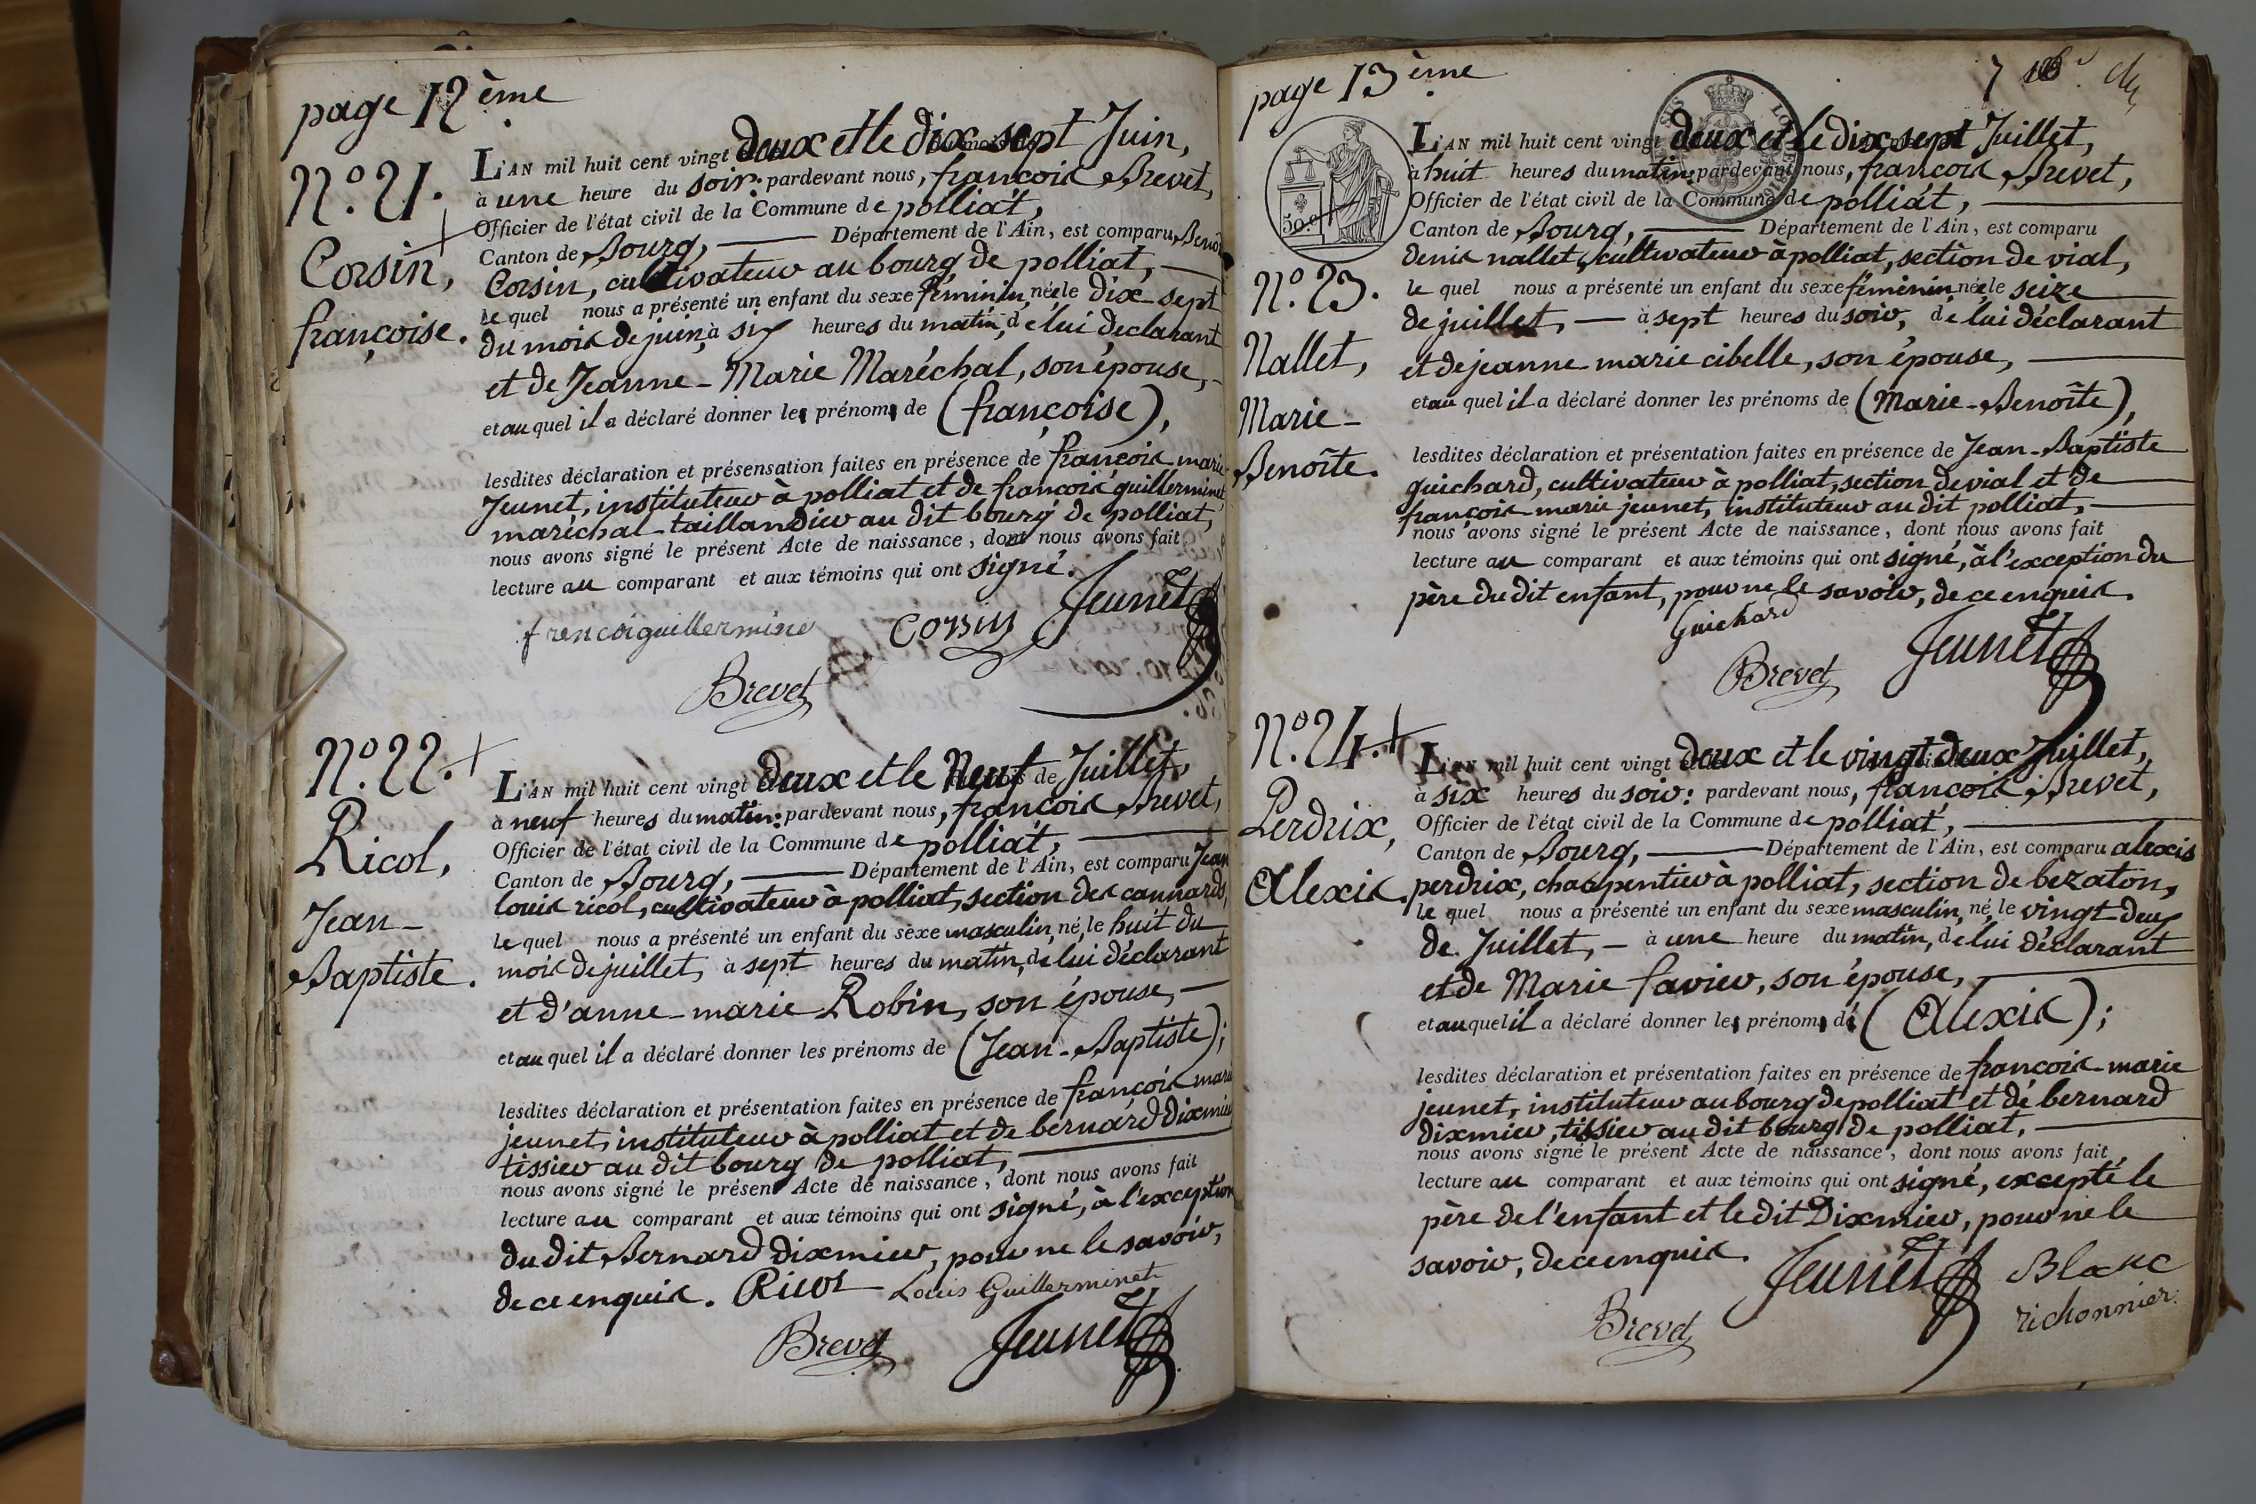 page 12ème
N.º 21.
Corsin,
françoise.
L'AN mil huit cent vingt deux et le dix-sept Juin,
à une heure du soir: pardevant nous, françois Brevet,
Officier de l'état civil de la Commune de polliat,
Canton de Bourg, Département de l'Ain, est comparu, Benoît
Corsin, cultivateur au bourg de polliat,
le quel nous a présenté un enfant du sexe féminin, née le dix-sept
du mois de juin, à six heures du matin, de lui déclarant
et de Jeanne-Marie Maréchal, son épouse,
et au quel il a déclaré donner le prénom de (françoise),
lesdites déclaration et présensation faites en présence de françois-marie
Jeunet, instituteur à polliat et de françois guillerminet,
maréchal-taillandier au dit bourg de polliat,
nous avons signé le présent Acte de naissance, dont nous avons fait
lecture au comparant et aux témoins qui ont signé.
frencoiguillermine Corsin Jeunet
Brevet
N.º 22.
Ricol,
Jean-
Baptiste.
L'AN mil huit cent vingt deux et le Neuf de Juillet,
à neuf heures du matin: pardevant nous, françois Brevet,
Officier de l'état civil de la Commune de polliat,
Canton de Bourg, Département de l'Ain, est comparu Jean
louis ricol, cultivateur à polliat, section des cannards,
le quel nous a présenté un enfant du sexe masculin, né, le huit du
mois de juillet, à sept heures du matin, de lui déclarant
et d'anne-marie Robin, son épouse,
et au quel il a déclaré donner les prénoms de (Jean-Baptiste);
lesdites déclaration et présentation faites en présence de françois marie
jeunet, instituteur à polliat et de bernard Dixmier
tissier au dit bourg de polliat,
nous avons signé le présent Acte de naissance, dont nous avons fait
lecture au comparant et aux témoins qui ont signé, à l'exception
du dit Bernard Dixmier, pour ne le savoir,
de ce enquis. Ricol Louis Guillerminet
Brevet Jeunet
page 13ème
7
50.c
N.º 23.
Nallet,
Marie-
Benoîte.
L'AN mil huit cent vingt deux et le dix sept Juillet,
à huit heures du matin: pardevant nous, françois Brevet,
Officier de l'état civil de la Commune de polliat,
Canton de Bourg, Département de l'Ain, est comparu
denis nallet, cultivateur à polliat, section de vial,
le quel nous a présenté un enfant du sexe féminin née, le seize
de juillet, à sept heures du soir, de lui déclarant
et de jeanne marie cibelle, son épouse,
et au quel il a déclaré donner les prénoms de (Marie-Benoîte),
lesdites déclaration et présentation faites en présence de Jean-Baptiste
guichard, cultivateur à polliat, section de vial et de
françois-marie jeunet, instituteur au dit polliat,
nous avons signé le présent Acte de naissance, dont nous avons fait
lecture au comparant et aux témoins qui ont signé, à l'exception du
père du dit enfant, pour ne le savoir, de ce enquis.
Guichard
Brevet Jeunet
N.º 24.
Perdrix,
Alexis.
L'AN mil huit cent vingt deux et le vingt deux Juillet,
à six heures du soir: pardevant nous, françois Brevet,
Officier de l'état civil de la Commune de polliat,
Canton de Bourg, Département de l'Ain, est comparu alexis
perdrix, charpentier à polliat, section de bézaton,
le quel nous a présenté un enfant du sexe masculin, né, le vingt-deux
de Juillet, à une heure du matin, de lui déclarant
et de Marie favier, son épouse,
et au quel il a déclaré donner le prénom de (Alexis);
lesdites déclaration et présentation faites en présence de françois-marie
jeunet, instituteur au bourg de polliat et de bernard
dixmier, tissier au dit bourg de polliat,
nous avons signé le présent Acte de naissance, dont nous avons fait
lecture au comparant et aux témoins qui ont signé, excepté le
père de l'enfant et le dit Dixmier, pour ne le
savoir, de ce enquis. Jeunet Blanc
Brevet richonnier